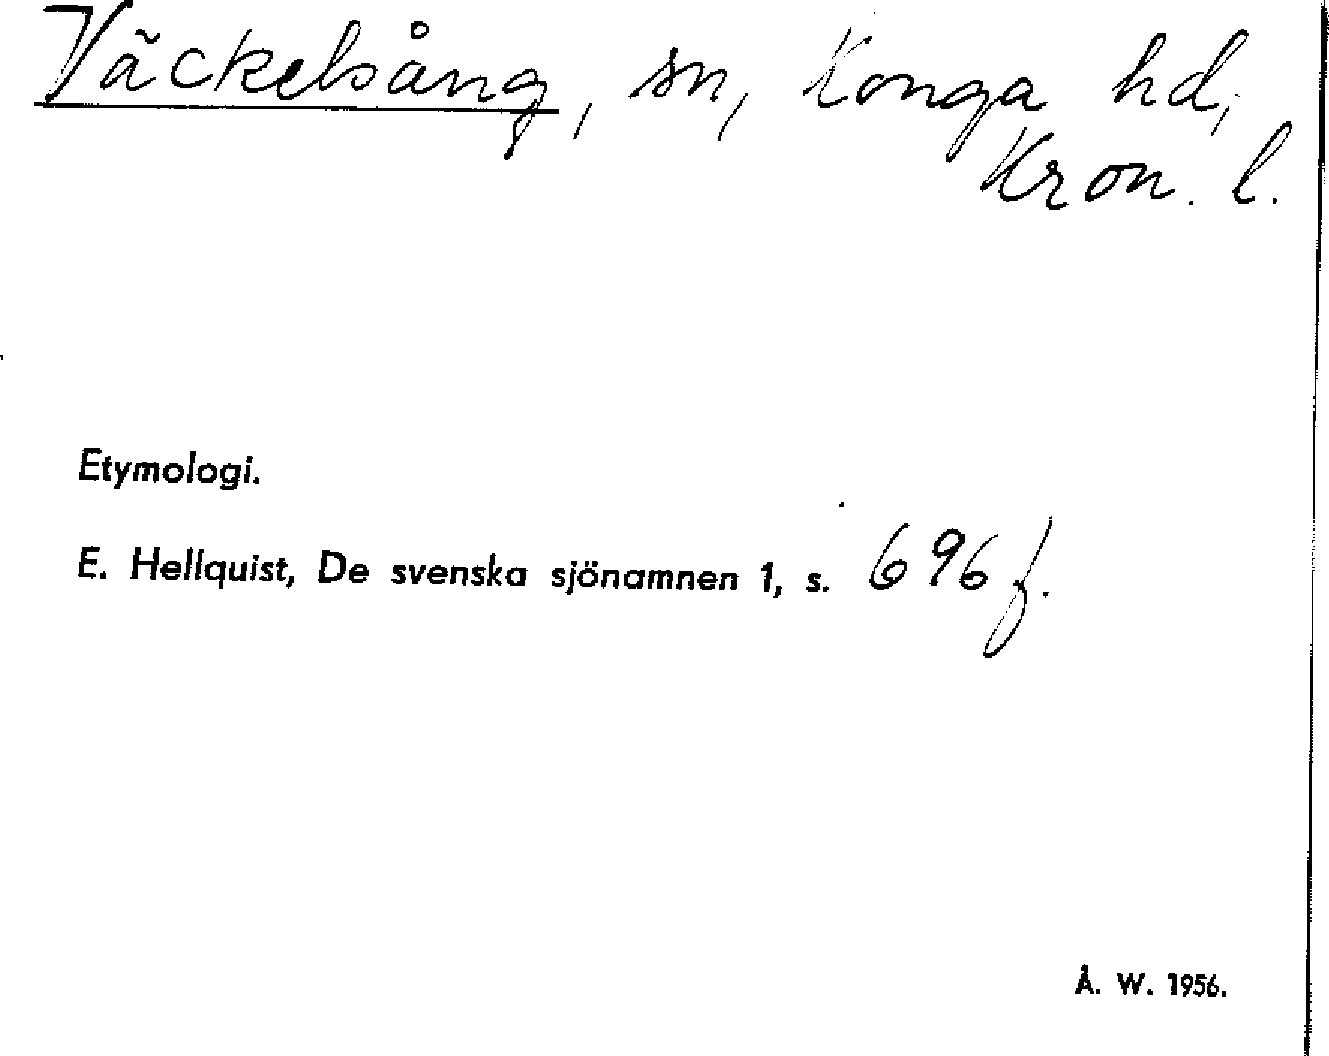 Väckelsång, sn, Konga hd,
Kron. l.
Etymologi.
E. Hellquist, De svenska sjönamnen 1, s. 696 f.
Å. W. 1956.